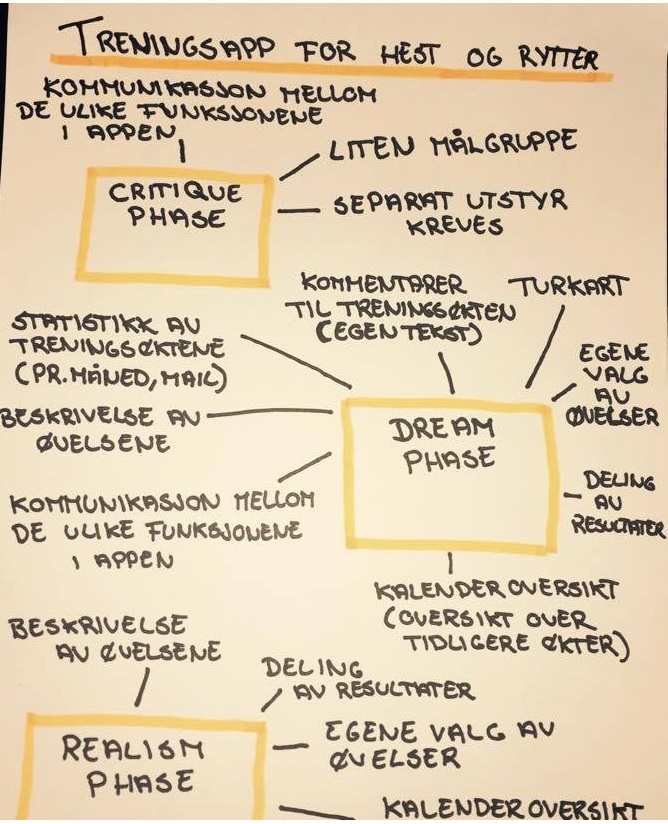 TRENINGSAPP FOR HEST OG RYTTER
KOMMUNIKASJON MELLOM
DE ULIKE FUNKSJONENE
I APPEN
LITEN MÅLGRUPPE
CRITIQUE
PHASE
SEPARAT UTSTYR
KREVES
KOMMENTARER
TIL TRENINGSØKTEN
(EGEN TEKST)
TURKART
STATISTIKK AV
TRENINGSØKTENE
(PR. MÅNED, MAIL)
EGENE
VALG
AV
ØVELSER
BESKRIVELSE AV
ØVELSENE
DREAM
PHASE
DELING
AV
RESULTATER
KOMMUNIKASJON MELLOM
DE ULIKE FUNKSJONENE
I APPEN
KALENDEROVERSIKT
(OVERSIKT OVER
TIDLIGERE ØKTER)
BESKRIVELSE
AV ØVELSENE
DELING
AV RESULTATER
REALISM
PHASE
EGENE VALG AV
ØVELSER
KALENDEROVERSIKT